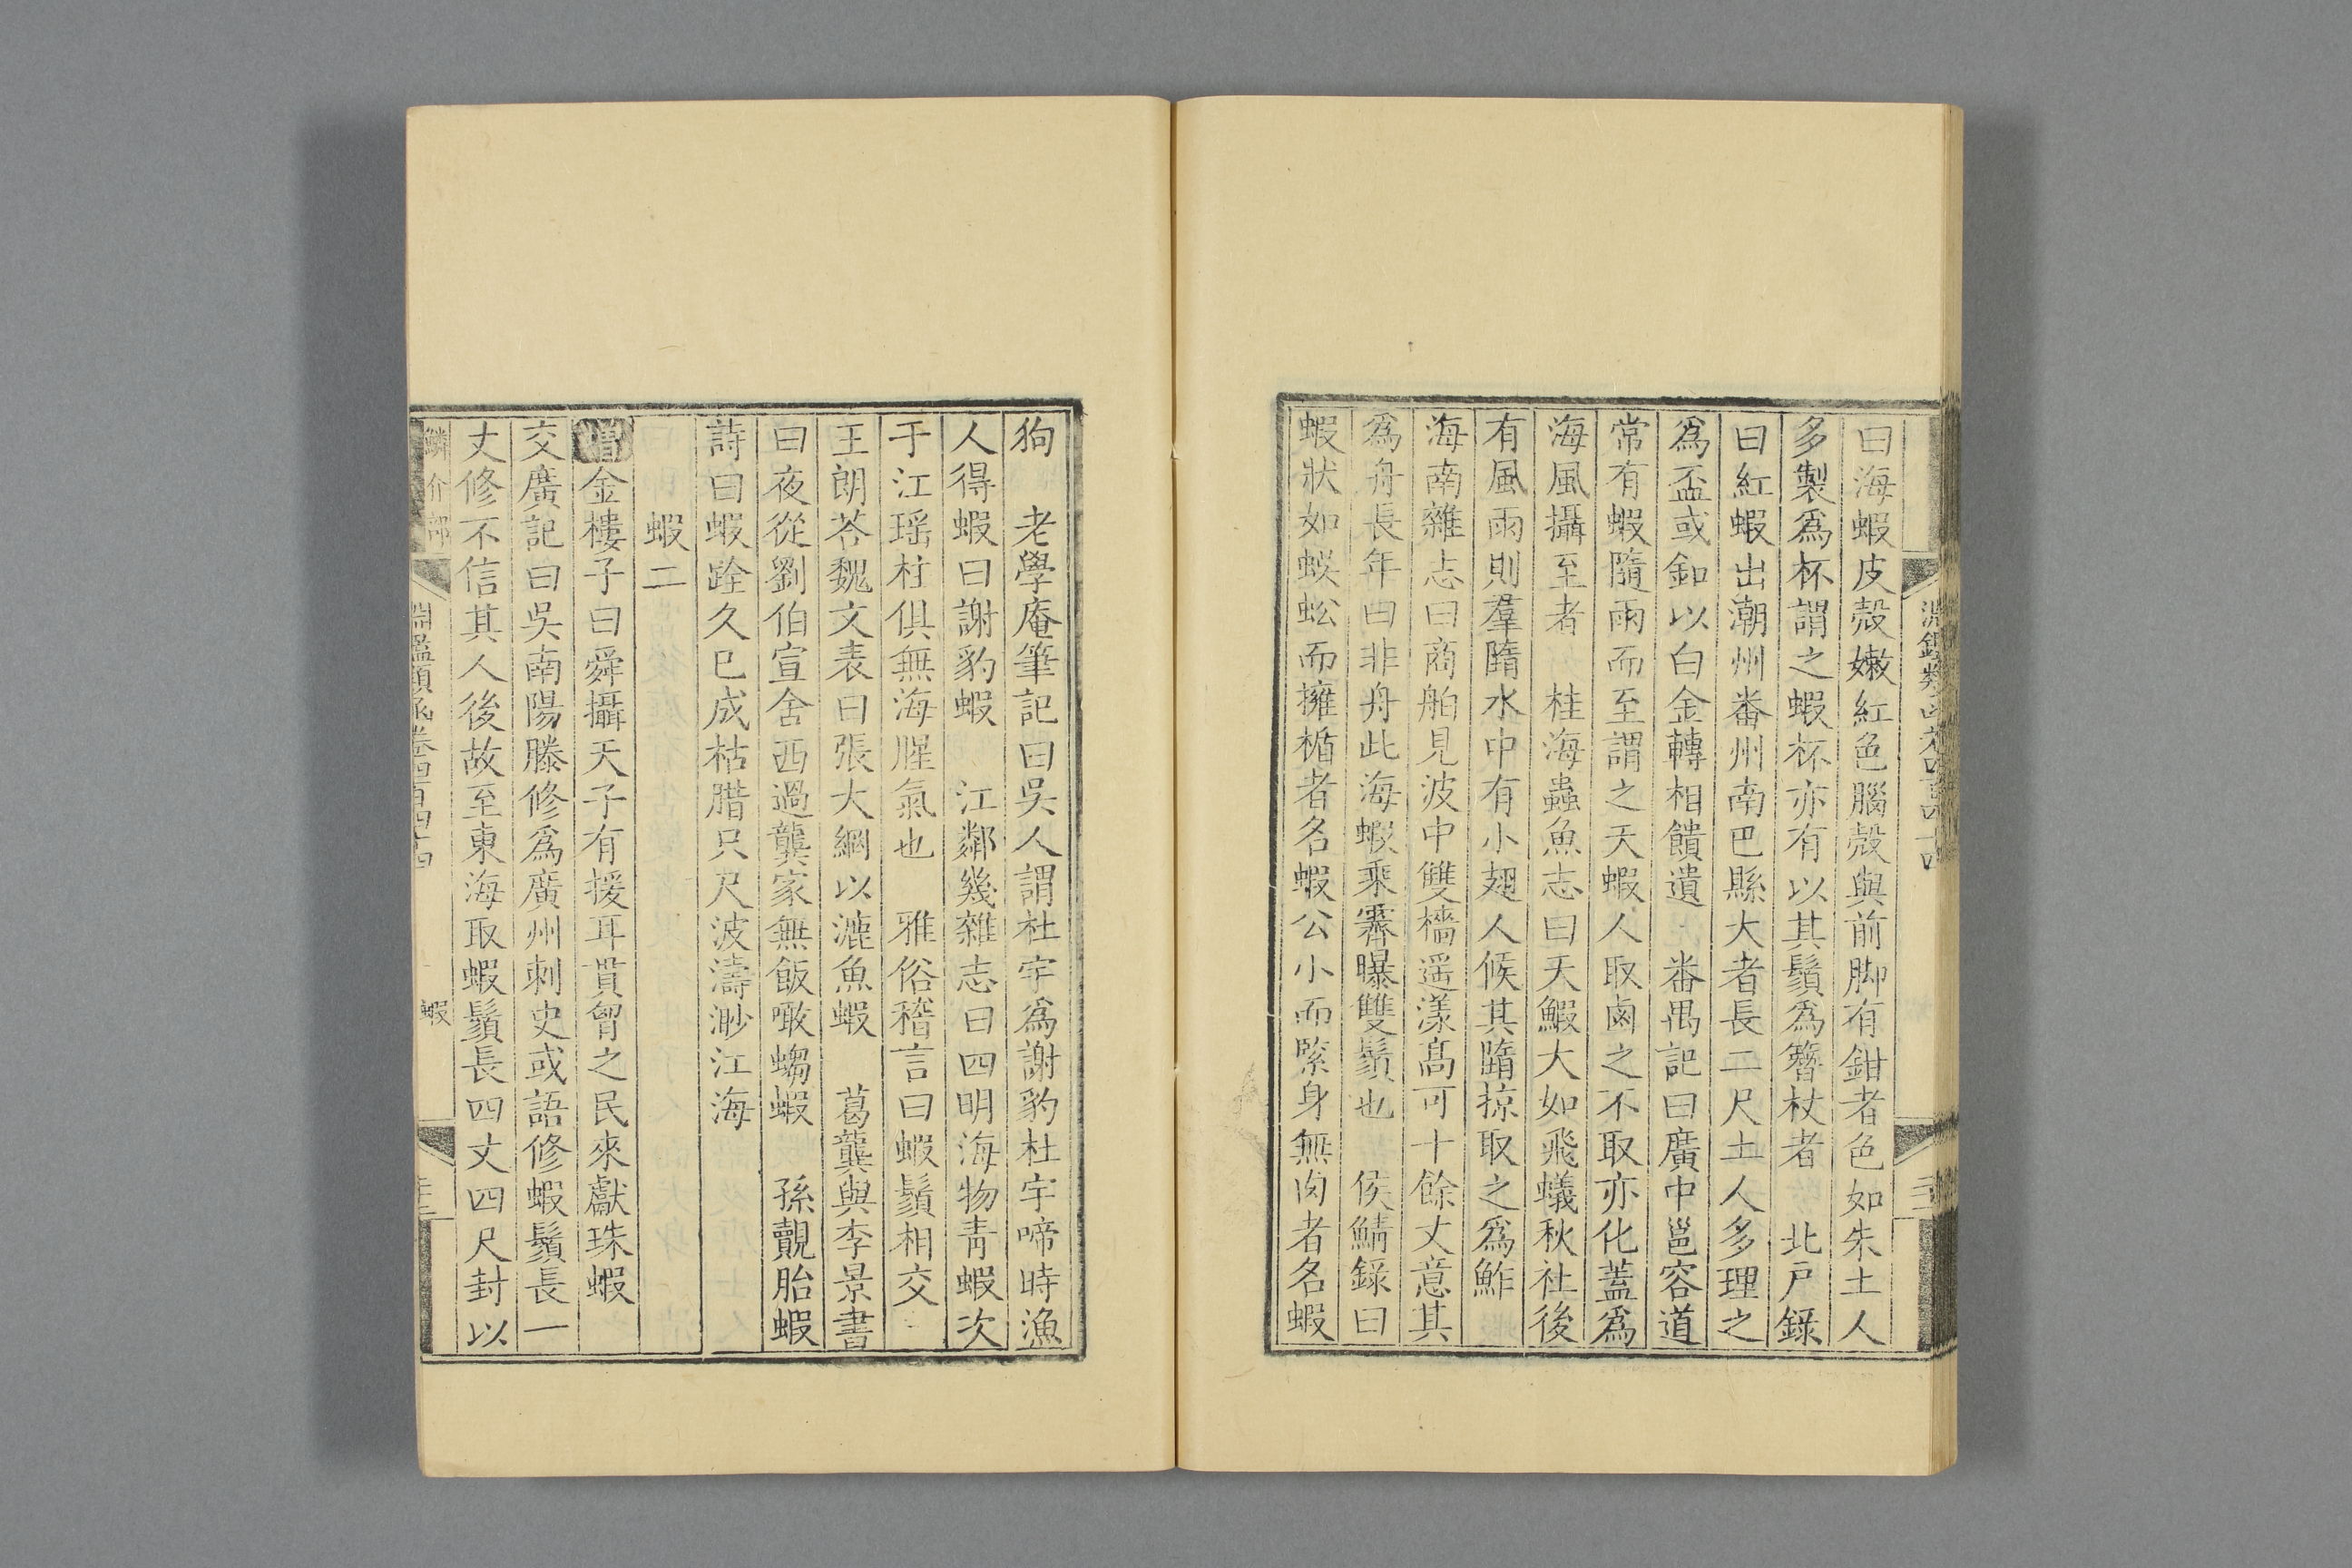 曰海蝦皮殼嫩紅色腦殼與前脚有鉗者色如朱土人
多製爲杯謂之蝦杯亦有以其鬚爲簪杖者　北戸錄
曰紅蝦出潮州番州南巴縣大者長二尺土人多理之
爲盃或釦以白金轉相饋遺　番禺記曰廣中邕容道
常有蝦隨雨而至謂之天蝦人取鹵之不取亦化蓋爲
海風攝至者　桂海蟲魚志曰天鰕大如飛蟻秋社後
有風雨則羣隋水中有小翅人候其隋掠取之爲鮓
海南雜志曰商舶見波中雙檣遥漾高可十餘丈意其
爲舟長年曰非舟此海蝦乘霽曝雙鬚也　侯鯖錄曰
蝦狀如蜈蚣而擁楯者名蝦公小而緊身無肉者名蝦
狗　老學庵筆記曰吳人謂杜宇爲謝豹杜宇啼時漁
人得蝦曰謝豹蝦　江鄰幾雜志曰四明海物靑蝦次
于江瑶柱俱無海腥氣也　雅俗稽言曰蝦鬚相交
王朗荅魏文表曰張大網以漉魚蝦　葛龔與李景書
曰夜從劉伯宣舍西過龔家無飯噉蟛蝦　孫覿胎蝦
詩曰蝦跧久已成枯腊只尺波濤渺江海
蝦二
增金樓子曰舜攝天子有援耳貫胷之民來獻珠蝦
交廣記曰吳南陽滕修爲廣州刺史或語修蝦鬚長一
丈修不信其人後故至東海取蝦鬚長四丈四尺封以
鱗介部　淵鑑類函卷四百四十四　蝦